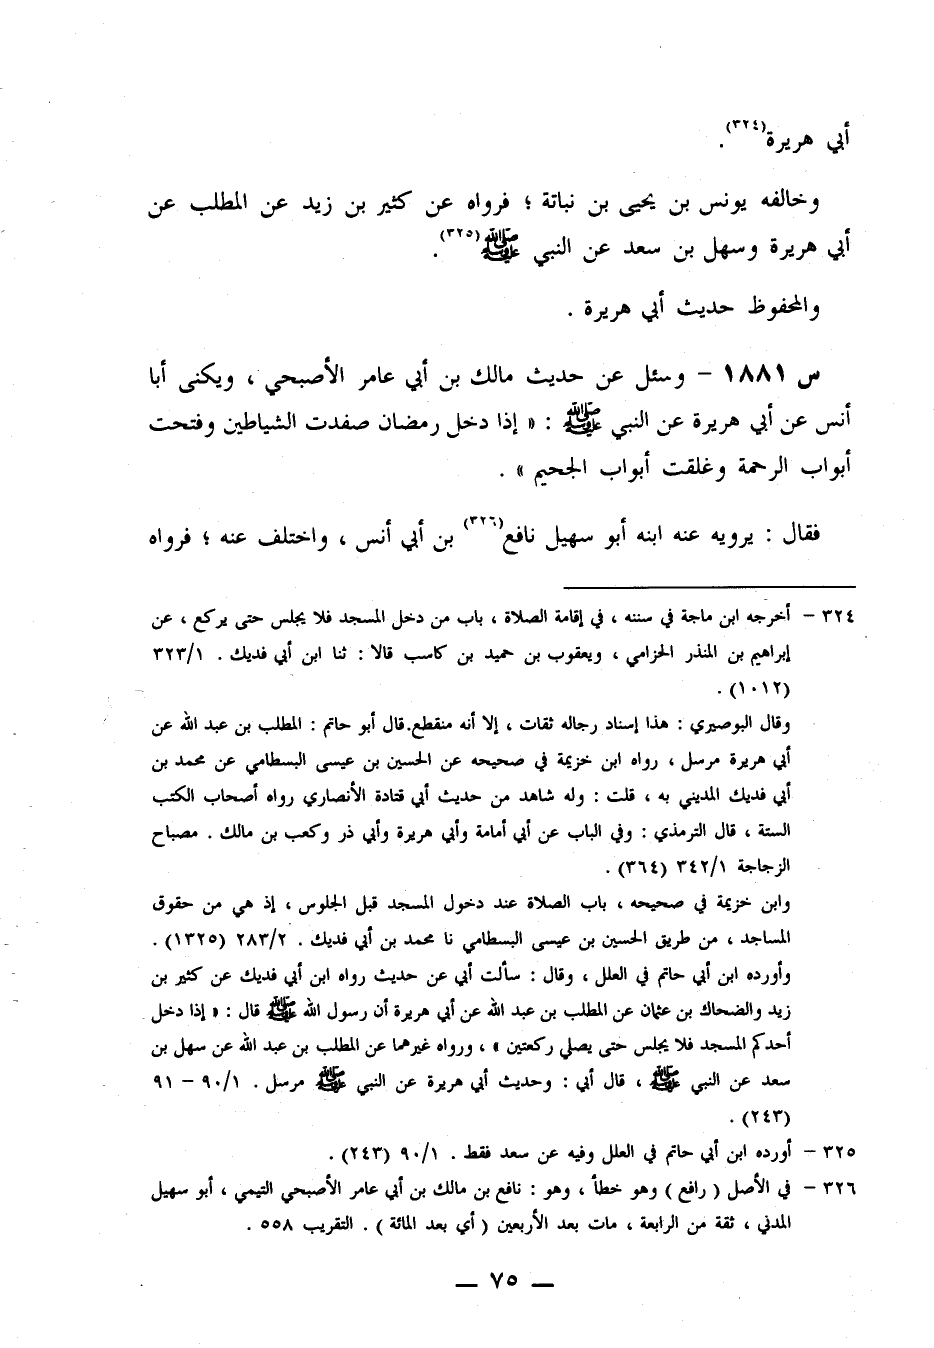 أبي هريرة(٣٢٤).
وخالفه يونس بن يحيى بن نباتة ؛ فرواه عن كثير بن زيد عن المطلب عن
أبي هريرة وسهل بن سعد عن النبي ﷺ(٣٢٥).
والمحفوظ حديث أبي هريرة .
س ١٨٨١ - وسئل عن حديث مالك بن أبي عامر الأصبحي ، ويكنى أبا
أنس عن أبي هريرة عن النبي ﷺ : « إذا دخل رمضان صفدت الشياطين وفتحت
أبواب الرحمة وغلقت أبواب الجحيم » .
فقال : يرويه عنه ابنه أبو سهيل نافع(٣٢٦) بن أبي أنس ، واختلف عنه ؛ فرواه
٣٢٤ - أخرجه ابن ماجة في سننه ، في إقامة الصلاة ، باب من دخل المسجد فلا يجلس حتى يركع ، عن
إبراهيم بن المنذر الحزامي ، ويعقوب بن حميد بن كاسب قالا : ثنا ابن أبي فديك . ٣٢٣/١
(١٠١٢) .
وقال البوصيري : هذا إسناد رجاله ثقات ، إلا أنه منقطع.قال أبو حاتم : المطلب بن عبد الله عن
أبي هريرة مرسل ، رواه ابن خزيمة في صحيحه عن الحسين بن عيسى البسطامي عن محمد بن
أبي فديك المديني به ، قلت : وله شاهد من حديث أبي قتادة الأنصاري رواه أصحاب الكتب
الستة ، قال الترمذي : وفي الباب عن أبي أمامة وأبي هريرة وأبي ذر وكعب بن مالك . مصباح
الزجاجة ٣٤٢/١ (٣٦٤) .
وابن خزيمة في صحيحه ، باب الصلاة عند دخول المسجد قبل الجلوس ، إذ هي من حقوق
المساجد ، من طريق الحسين بن عيسى البسطامي نا محمد بن أبي فديك . ٢٨٣/٢ (١٣٢٥) .
وأورده ابن أبي حاتم في العلل ، وقال : سألت أبي عن حديث رواه ابن أبي فديك عن كثير بن
زيد والضحاك بن عثمان عن المطلب بن عبد الله عن أبي هريرة أن رسول الله ﷺ قال : « إذا دخل
أحدكم المسجد فلا يجلس حتى يصلي ركعتين » ، ورواه غيرهما عن المطلب بن عبد الله عن سهل بن
سعد عن النبي ﷺ ، قال أبي : وحديث أبي هريرة عن النبي ﷺ مرسل . ٩٠/١ - ٩١
(٢٤٣) .
٣٢٥ - أورده ابن أبي حاتم في العلل وفيه عن سعد فقط . ٩٠/١ (٢٤٣) .
٣٢٦ - في الأصل ( رافع ) وهو خطأ ، وهو : نافع بن مالك بن أبي عامر الأصبحي التيمي ، أبو سهيل
المدني ، ثقة من الرابعة ، مات بعد الأربعين ( أي بعد المائة ) . التقريب ٥٥٨ .
— ٧٥ —